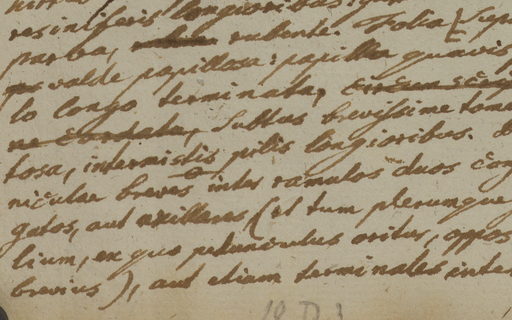 resiniferis longioribus
parva, rubente. Folia (sepe
valde papillosa: papilla quavis
lo longo terminata,
ne cordata, subtus brevissime tomen
tosa, intermixtis pilis longioribus.
niculae breves inter ramulos duos con
gatos, aut axillares (et tum plerumque
lium, ex quo pedunculus oritur, oppos
brevius), aut etiam terminales inter
18 D 3